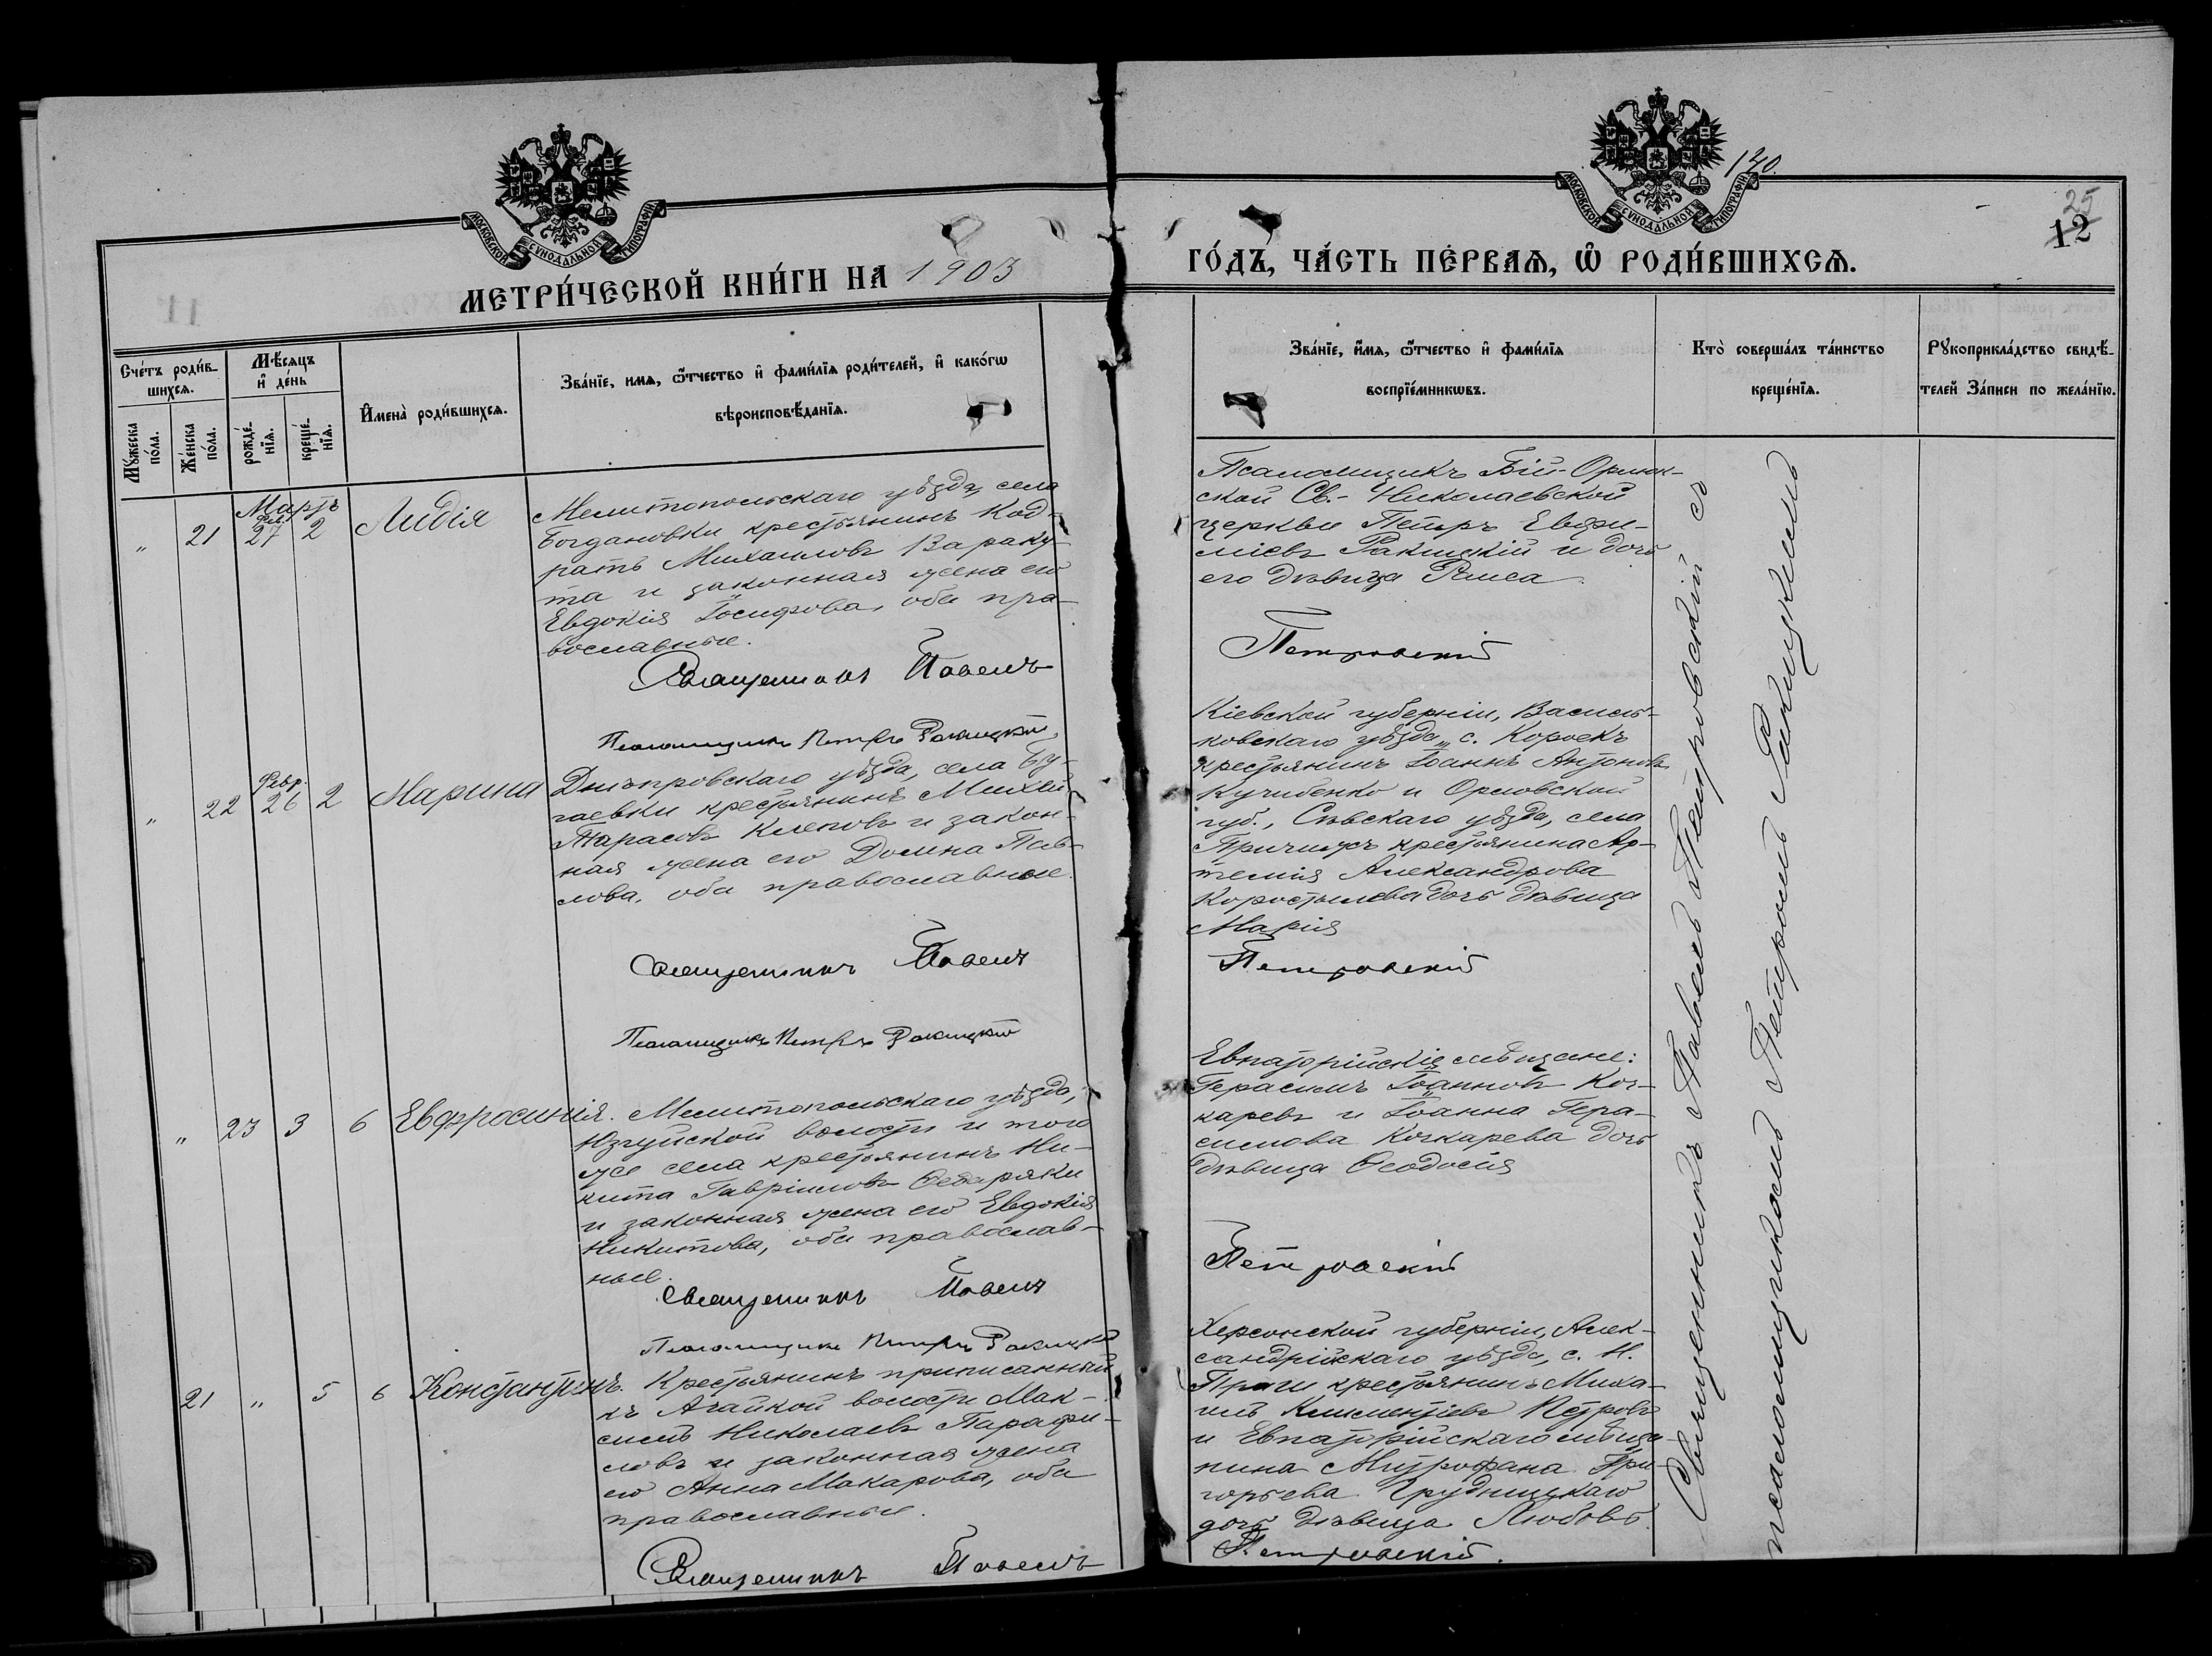 МОСКОВСКОЙ СѴНОДАЛЬНОЙ ТИПОГРАФІИ
МОСКОВСКОЙ СѴНОДАЛЬНОЙ ТИПОГРАФІИ
120.
25
12
МЕТРИ́ЧЕСКОЙ КНИ́ГИ НА 1903
ГО́ДЪ, ЧА́СТЬ ПЕ́РВАѦ, Ѡ҆ РОДИ́ВШИХСѦ.
Сче́тъ роди́в-
шихсѧ.
Мꙋ́жеска по́ла.
Же́нска по́ла.
Мѣ́сѧцъ и҆ де́нь
рожде́-
нїѧ.
креще́-
нїѧ.
И҆мена̀ роди́вшихсѧ.
Зва́нїе, имѧ, ѻ҆́тчество и҆ фами́лїѧ роди́телей, и҆ како́гѡ
вѣроисповѣ́данїѧ.
Зва́нїе, и҆́мѧ, ѻ҆́тчество и҆ фами́лїѧ
воспрїе́мникѡвъ.
Кто̀ соверша́лъ та́инство
креще́нїѧ.
Рꙋкоприкла́дство свидѣ́-
телей За́писи по жела́нїю.
Мартъ
" 21 Фев. 27 2 Лидія
Мелитопольскаго уѣзда, села
Богдановки крестьянинъ Код-
ратъ Михаиловъ Вараку
та и законная жена его
Евдокія Іосифова, оба пра-
вославные.
Священникъ Павелъ
Псаломщикъ Петръ Ракицкій
Псаломщикъ Бій-Орлюк-
ской Св.-Николаевской
церкви Петръ Евфи-
міевъ Ракицкій и дочь
его дѣвица Раиса
Петровскій
" 22 Февр. 26 2 Марина
Днѣпровскаго уѣзда, села Бу-
гаевки крестьянинъ Михей
Тарасовъ Клеповъ и закон-
ная жена его Домна Пав-
лова, оба православные.
Священникъ Павелъ
Псаломщикъ Петръ Ракицкій
Кіевской губерніи, Василь-
ковскаго уѣзда, с.
крестьянинъ Іоаннъ Антоновъ
и Орловской
губ., Сѣвскаго уѣзда, села
крестьянина Ар-
темія Александрова
Коростылева дочь дѣвица
Марія
Петровскій
" 23 3 6 Евфросинія.
Мелитопольскаго уѣзда,
волости и того
же села крестьянинъ Ни-
кита Гавріиловъ
и законная жена его Евдокія
Никитова, оба православ-
ные.
Священникъ Павелъ
Псаломщикъ Петръ Ракицкій
Евпаторійскіе мѣщане:
Герасимъ Іоанновъ Коч-
каревъ и Іоанна Гера-
симова Кочкарева дочь
дѣвица Ѳеодосія
Петровскій
21 " 5 6 Константинъ.
Крестьянинъ приписанный
къ волости Мак-
симъ Николаевъ Парафи-
ловъ и законная жена
его Анна Макарова, оба
православные.
Священникъ Павелъ
Херсонской губерніи, Алек-
сандрійскаго уѣзда, с. Н.
Праги крестьянинъ Миха-
илъ Климентіевъ Петровъ
и Евпаторійскаго мѣща-
нина Митрофана Гри-
горьева Грудницкаго
дочь дѣвица Любовь.
Петровскій.
Священникъ Павелъ Петровскій съ
псаломщикомъ Петромъ Ракицкимъ